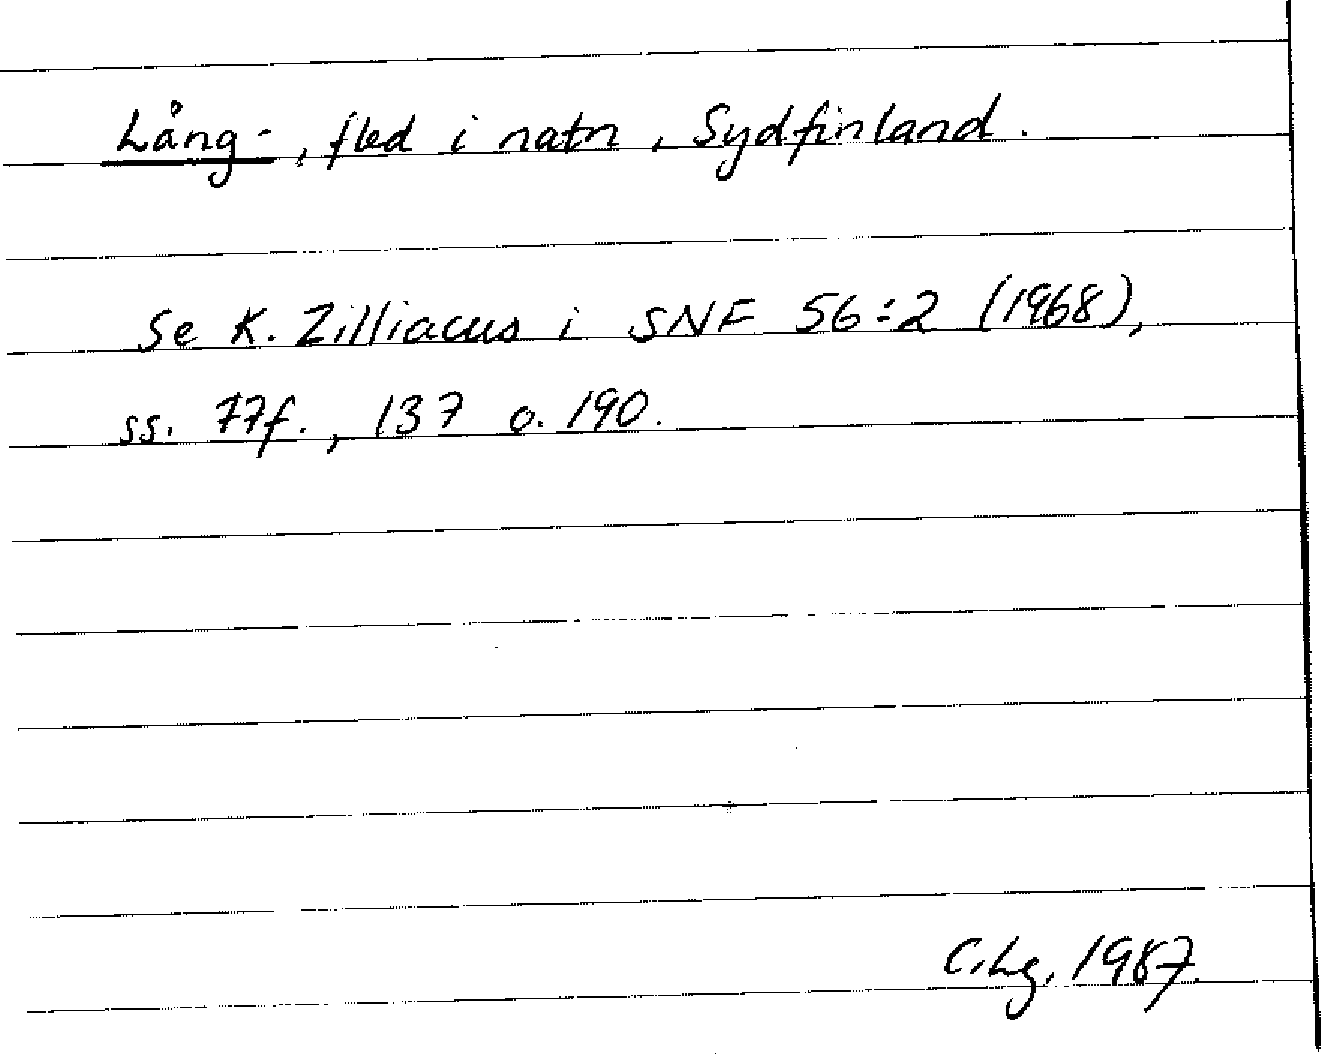 Lång-, fled i natn, Sydfinland.
Se K. Zilliacus i SNF 56:2 (1968),
ss. 77f., 137 o. 190.
C.Lg. 1987